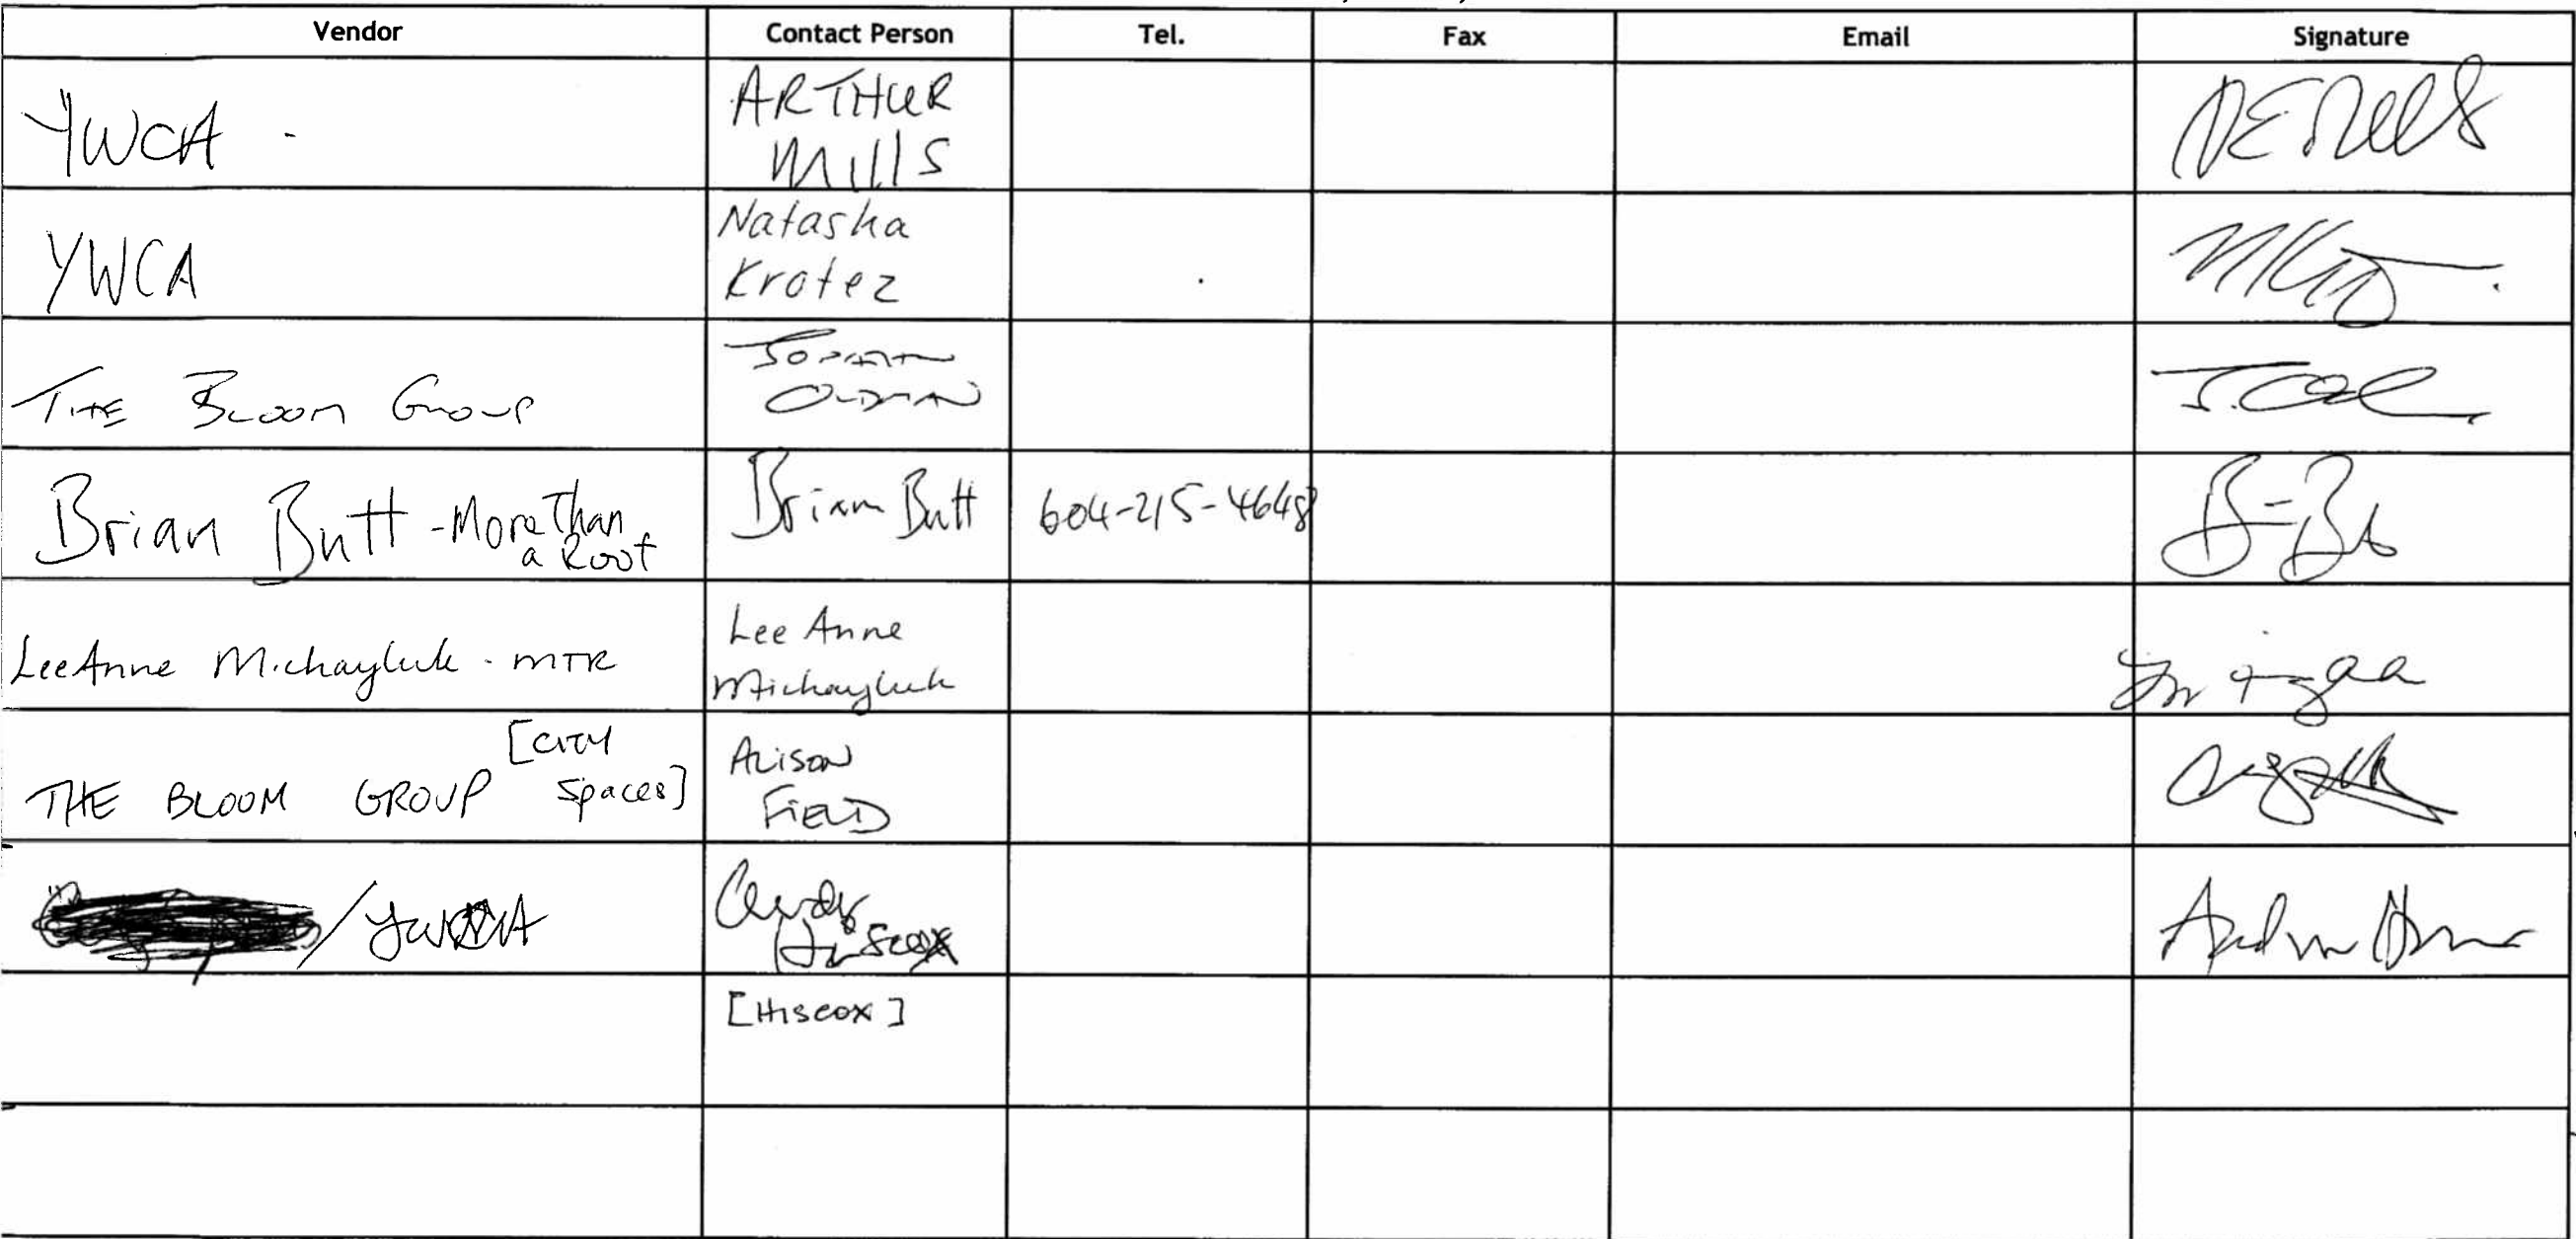 Vendor Contact Person Tel. Fax Email Signature
YWCA - ARTHUR
MILLS
YWCA Natasha
Krotez
THE BLOOM GROUP
OLDMAN
Brian Butt - More Than
a Roof
Brian Butt 604-215-4648
LeeAnne Michayluk - MTR
Lee Anne
Michayluk
THE BLOOM GROUP [CITY
Spaces]
ALISON
FIELD
/ YWCA
Andy
Hiscox
[HISCOX]